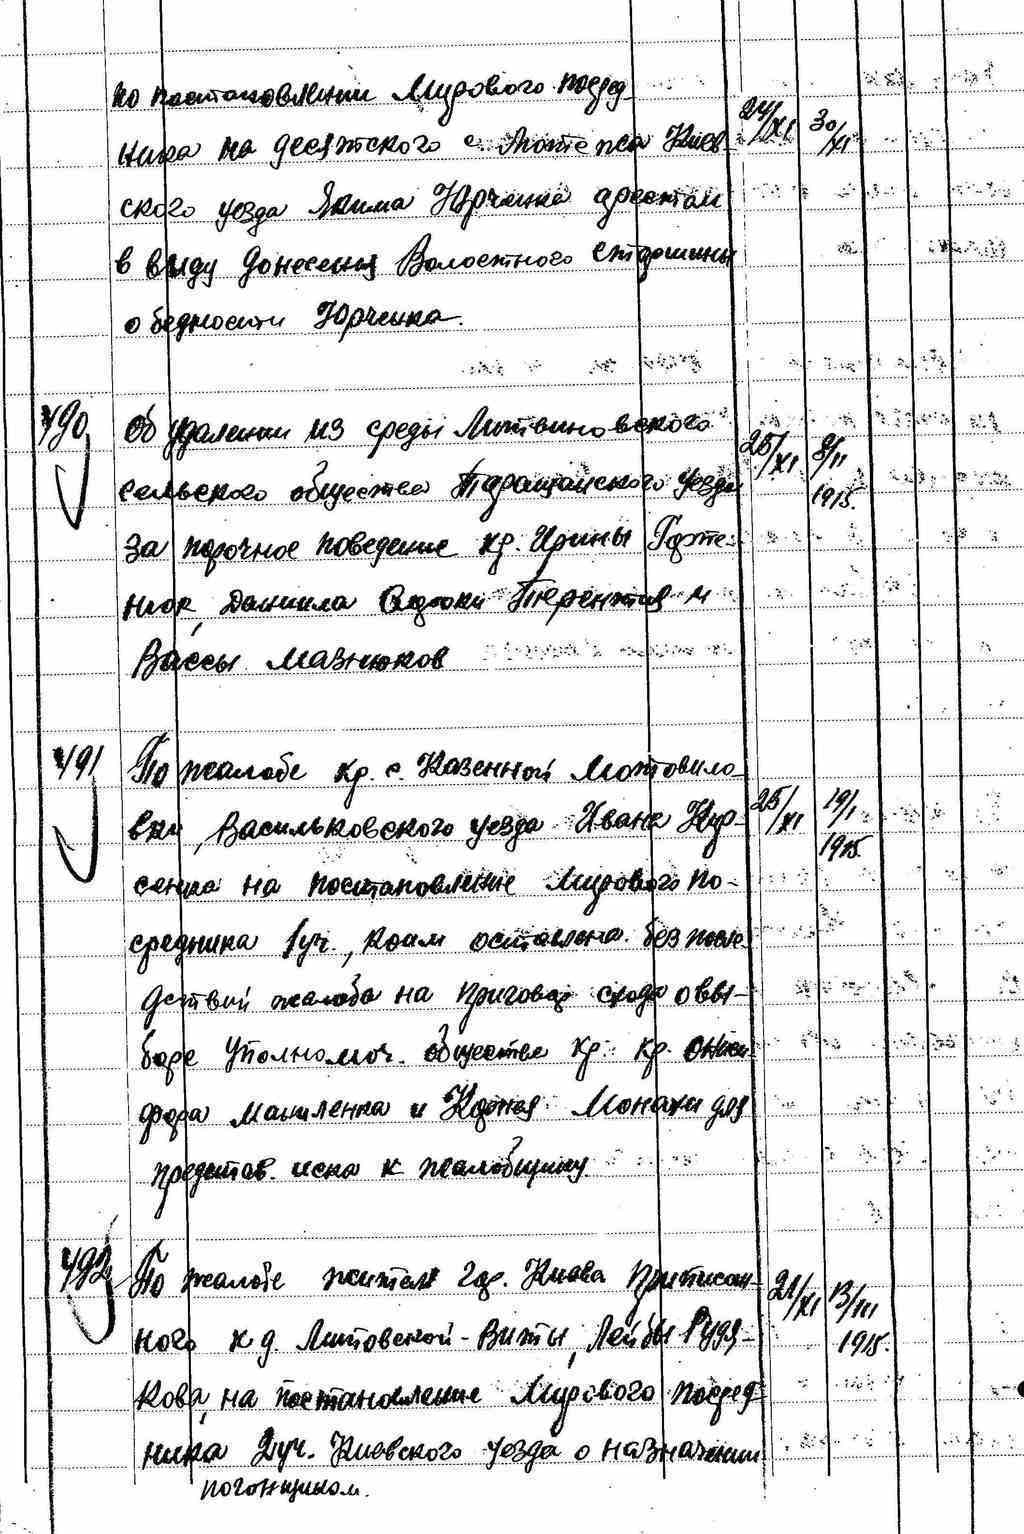 по постановлении Мирового посред-
ника на десятского с. Мотежа Киев- 24/XI 30/XI
ского уезда Якима Юрченка арестам
в виду донесения Волостного старшины
о бедности Юрченка.
490 Об удалении из среды Литвиновского
сельского общества Таращанского уезда 25/XI 8/II 1915.
за порочное поведение кр. Ирины
Даниила Терентия и
Вассы Мазнюков
491 По жалобе кр. с. Казенной Мотовило-
вки, Васильковского уезда Ивана Кур- 25/XI 19/I 1915.
сенка на постановление Мирового по-
средника 1 уч., коим оставлена без после-
дствий жалоба на приговор схода о вы-
боре уполномоч. общества кр. кр. Ониси-
фора Маниленка и Монахи для
представ. иска к жалобщику.
492 По жалобе жителя гор. Киева приписан-
ного к д. Литовской-Виты, Лейбы Рудя- 21/XI 13/III 1915.
кова, на постановление Мирового посред-
ника 2 уч. Киевского уезда о назначении
погонщиком.